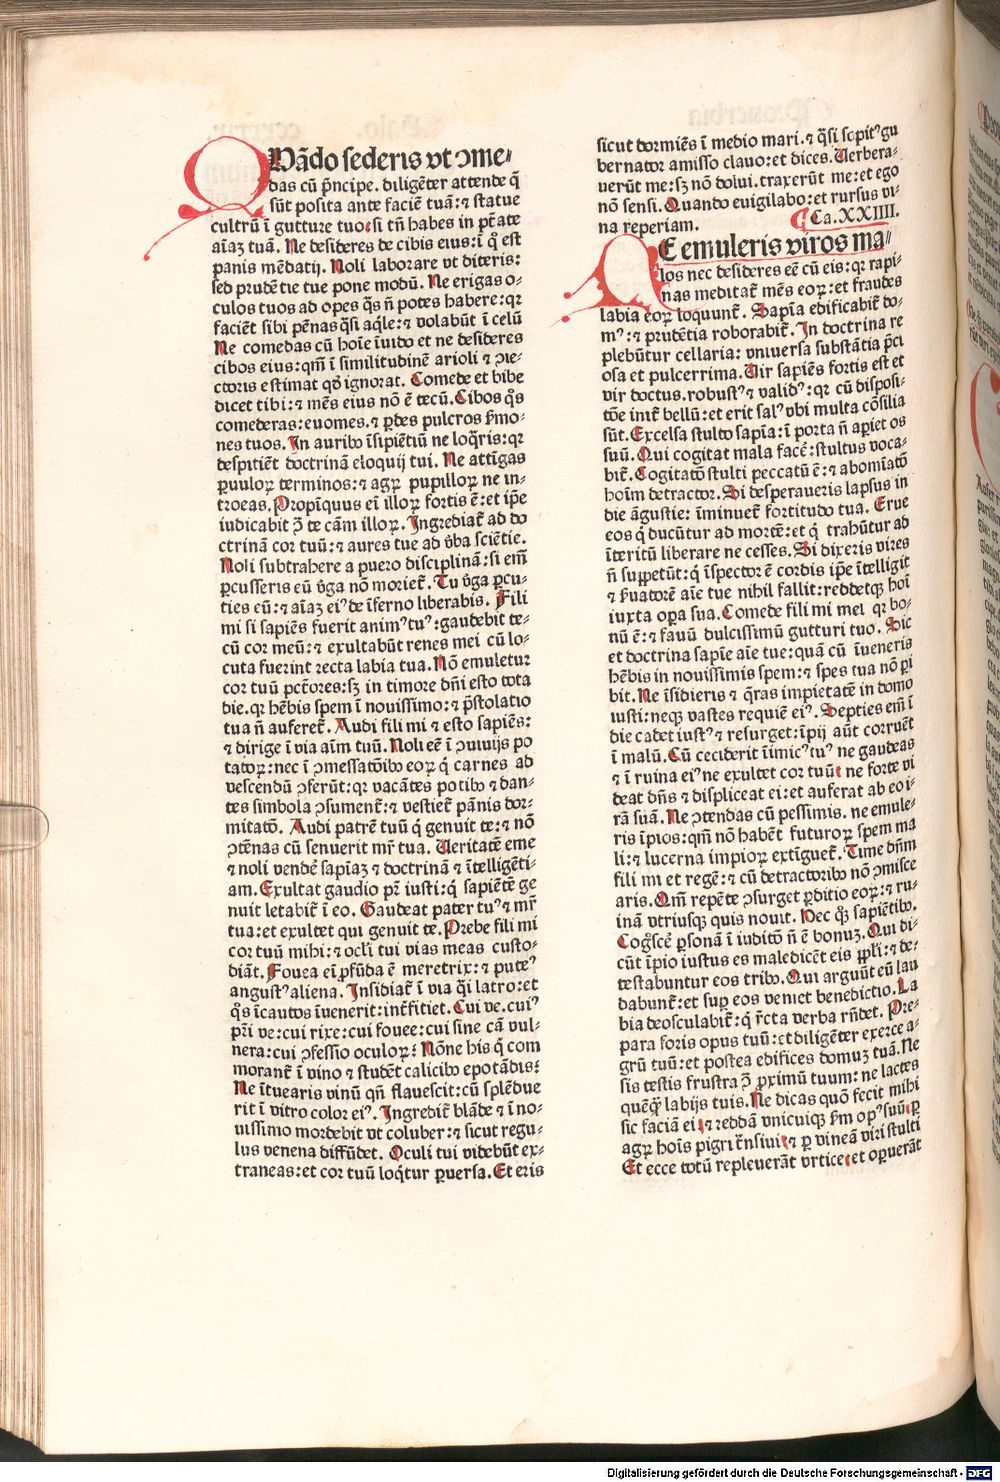 QUãdo sederis vt ↄme⸗
das cũ p̃ncipe. diligẽter attende q̃
sũt posita ante faciẽ tuã: ⁊ statue
cultrũ ĩ gutture tuo: si tñ habes in ptãte
aĩaʒ tuã. Ne desideres de cibis eius: ĩ q̊ est
panis mẽdatij. Noli laborare vt diteris:
sed prudẽtie tue pone modũ. Ne erigas o⸗
culos tuos ad opes q̃s ñ potes habere: qꝛ
faciẽt sibi pẽnas q̃si aq̃le: ⁊ volabũt ĩ celũ
Ne comedas cũ hoĩe ĩuido et ne desideres
cibos eius: qm̃ ĩ similitudinẽ arioli ⁊ ↄie⸗
ctoris estimat qđ ignorat. Comede et bibe
dicet tibi: ⁊ mẽs eius nõ ẽ tecũ. Cibos q̊s
comederas: euomes. ⁊ ꝑdes pulcros ẜmo⸗
nes tuos. In auribꝰ ĩsipiẽtiũ ne loq̃ris: qꝛ
despitiẽt doctrinã eloquij tui. Ne attĩgas
ꝑuuloꝝ terminos: ⁊ agꝝ pupilloꝝ ne in⸗
troeas. Propĩquus eĩ illoꝝ fortis ẽ: et ip̃e
iudicabit ↄ̃ te cãm illoꝝ. Ingrediat̃ ad do
ctrinã cor tuũ: ⁊ aures tue ad v̓ba sciẽtie.
Noli subtrahere a puero disciplinã: si em̃
ꝑcusseris eũ v̓ga nõ moriet̃. Tu v̓ga ꝑcu⸗
ties eũ: ⁊ aĩaʒ eiꝰ de ĩferno liberabis. Fili
mi si sapiẽs fuerit animꝰ tuꝰ: gaudebit te⸗
cũ cor meũ: ⁊ exultabũt renes mei cũ lo⸗
cuta fuerint recta labia tua. Nõ emuletur
cor tuũ pctõres: sʒ in timore dñi esto tota
die. qꝛ hẽbis spem ĩ nouissimo: ⁊ p̃stolatio
tua ñ auferet̃. Audi fili mi ⁊ esto sapiẽs:
⁊ dirige ĩ via aĩm tuũ. Noli eẽ ĩ ↄuiuijs po
tatoꝝ: nec ĩ ↄmessatõibꝰ eoꝝ q̇ carnes ad
vescendũ ↄferũt: qꝛ vacãtes potibꝰ ⁊ dan⸗
tes simbola ↄsument̃: ⁊ vestiet̃ pãnis dor⸗
mitatõ. Audi patrẽ tuũ q̇ genuit te: ⁊ nõ
ↄtẽnas cũ senuerit mr̃ tua. Veritatẽ eme
⁊ noli vendẽ sapĩaʒ ⁊ doctrinã ⁊ ĩtelligẽti⸗
am. Exultat gaudio pr̃ iusti: q̇ sapiẽtẽ ge
nuit letabit̃ ĩ eo. Gaudeat pater tuꝰ ⁊ mr̃
tua: et exultet qui genuit te. Prebe fili mi
cor tuũ mihi: ⁊ ocl̓i tui vias meas custo⸗
diãt. Fouea eĩ ꝓfũda ẽ meretrix: ⁊ puteꝰ
angustꝰ aliena. Insidiat̃ ĩ via q̃i latro: et
q̊s ĩcautos ĩuenerit: int̃fitiet. Cui ve. cuiꝰ
pr̃i ve: cui rixe: cui fouee: cui sine cã vul⸗
nera: cui ↄfessio oculoꝝ? Nõne his q̇ com
morant̃ ĩ vino ⁊ studẽt calicibꝰ epotãdis?
Ne ĩtuearis vinũ qñ flauescit: cũ splẽdue
rit ĩ vitro color eiꝰ. Ingredit̃ blãde ⁊ ĩ no⸗
uissimo mordebit vt coluber: ⁊ sicut regu⸗
lus venena diffũdet. Oculi tui videbũt ex⸗
traneas: et cor tuũ loq̃tur ꝑuersa. Et eris
sicut dormiẽs ĩ medio mari. ⁊ q̃si sopitꝰ gu
bernator amisso clauo: et dices. Verbera⸗
uerũt me: sʒ nõ dolui. traxerũt me: et ego
nõ sensi. Quando euigilabo: et rursus vi⸗
na reperiam. Ca. XXIIII.
NE emuleris viros ma⸗
los nec desideres eẽ cũ eis: qꝛ rapi⸗
nas meditat̃ mẽs eoꝝ: et fraudes
labia eoꝝ loquunt̃. Sapĩa edificabit̃ do⸗
mꝰ: ⁊ prudẽtia roborabit̃. In doctrina re
plebũtur cellaria: vniuersa substãtia p̃ci
osa et pulcerrima. Vir sapiẽs fortis est et
vir doctus. robustꝰ ⁊ validꝰ: qꝛ cũ disposi⸗
tõe init̃ bellũ: et erit salꝰ vbi multa cõsilia
sũt. Excelsa stulto sapĩa: ĩ porta ñ aꝑiet os
suũ. Qui cogitat mala facẽ: stultus voca⸗
bit̃. Cogitatõ stulti peccatũ ẽ: ⁊ abomĩatõ
hoĩm detractor. Si desperaueris lapsus in
die ãgustie: ĩminuet̃ fortitudo tua. Erue
eos q̇ ducũtur ad mortẽ: et q̇ trahũtur ad
ĩteritũ liberare ne cesses. Si dixeris vires
ñ suppetũt: q̇ ĩspector ẽ cordis ip̃e ĩtelligit
⁊ ẜuatorẽ aĩe tue nihil fallit: reddetqꝫ hoĩ
iuxta oꝑa sua. Comede fili mi mel qꝛ bo⸗
nũ ẽ: ⁊ fauũ dulcissimũ gutturi tuo. Sic
et doctrina sapĩe aĩe tue: quã cũ ĩueneris
hẽbis in nouissimis spem: ⁊ spes tua nõ ꝑi
bit. Ne ĩsidieris ⁊ q̃ras impietatẽ in domo
iusti: neqꝫ vastes requiẽ eiꝰ. Septies em̃ ĩ
die cadet iustꝰ ⁊ resurget: ĩpij aũt corruẽt
ĩ malũ. Cũ ceciderit ĩimicꝰ tuꝰ ne gaudeas
⁊ ĩ ruina eiꝰ ne exultet cor tuũ: ne forte vi
deat dñs ⁊ displiceat ei: et auferat ab eo i⸗
rã suã. Ne ↄtendas cũ pessimis. ne emule⸗
ris ĩpios: qm̃ nõ habẽt futuroꝝ spem ma
li: ⁊ lucerna impioꝝ extĩguet̃. Time dñm
fili mi et regẽ: ⁊ cũ detractoribꝰ nõ ↄmisce
aris. Qm̃ repẽte ↄsurget ꝑditio eoꝝ: ⁊ ru⸗
inã vtriusqꝫ quis nouit. Nec q̊ꝫ sapiẽtibꝰ.
Cogsc̃ẽ ꝑsonã ĩ iuditõ ñ ẽ bonuʒ. Qui di⸗
cũt ĩpio iustus es maledicẽt eis ppl̓i: ⁊ de⸗
testabuntur eos tribꝰ. Qui arguũt eũ lau
dabunt̃: et suꝑ eos veniet benedictio. La
bia deosculabit̃: q̇ r̃cta verba rñdet. Pre⸗
para foris opus tuũ: et diligẽter exerce a⸗
grũ tuũ: et postea edifices domuʒ tuã. Ne
sis testis frustra ↄ̃ ꝓximũ tuum: ne lactes
quẽq̃ʒ labijs tuis. Ne dicas quõ fecit mihi
sic faciã ei: ⁊ reddã vnicuiqꝫ ẜm opꝰ suũ: ꝑ
agꝝ hoĩs pigri t̃nsiui: ⁊ ꝑ vineã viri stulti
Et ecce totũ repleuerãt vrtice: et oꝑuerãt
Digitalisierung gefördert durch die Deutsche Forschungsgemeinschaft - DFG